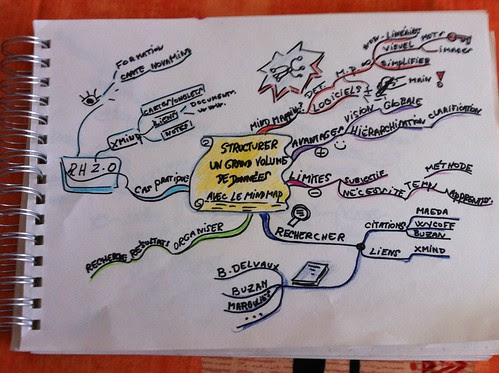 STRUCTURER
UN GRAND VOLUME
DE DONNÉES
AVEC LE MIND MAP
MIND MAPPING?
DEF. M.M
NON-LINÉAIRE
VISUEL
MOTS
IMAGES
SIMPLIFIER
LOGICIELS ≠
MAIN !
AVANTAGES
VISION GLOBALE
HIÉRARCHISATION
CLARIFICATION
LIMITES
SUBJECTIF
NÉCESSITE
TEMPS
METHODE
APPRENTIS.
RECHERCHER
CITATIONS
MAEDA
WYCOFF
BUZAN
LIENS
XMIND
B. DELVAUX
BUZAN
MARGULIES
...
ORGANISER
RÉSULTATS
RECHERCHE
CAS PRATIQUE
RH 2.0
FORMATION
CARTE NOVAMIND
XMIND
CARTES/ONGLETS
LIENS
DOCUMENT.
WWW.
NOTES